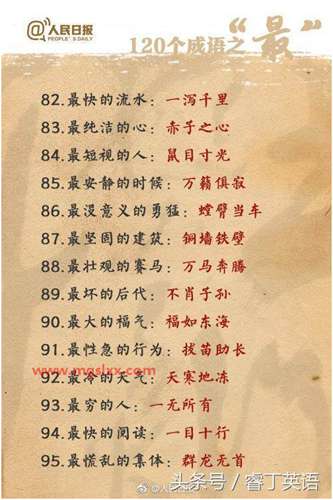 @人民日报
PEOPLE'S DAILY
120个成语之“最”
82.最快的流水：一泻千里
83.最纯洁的心：赤子之心
84.最短视的人：鼠目寸光
85.最安静的时候：万籁俱寂
86.最没意义的勇猛：螳臂当车
87.最坚固的建筑：铜墙铁壁
88.最壮观的赛马：万马奔腾
89.最坏的后代：不肖子孙
90.最大的福气：福如东海
91.最性急的行为：拔苗助长
92.最冷的天气：天寒地冻
93.最穷的人：一无所有
94.最快的阅读：一目十行
95.最慌乱的集体：群龙无首
头条号/睿丁英语